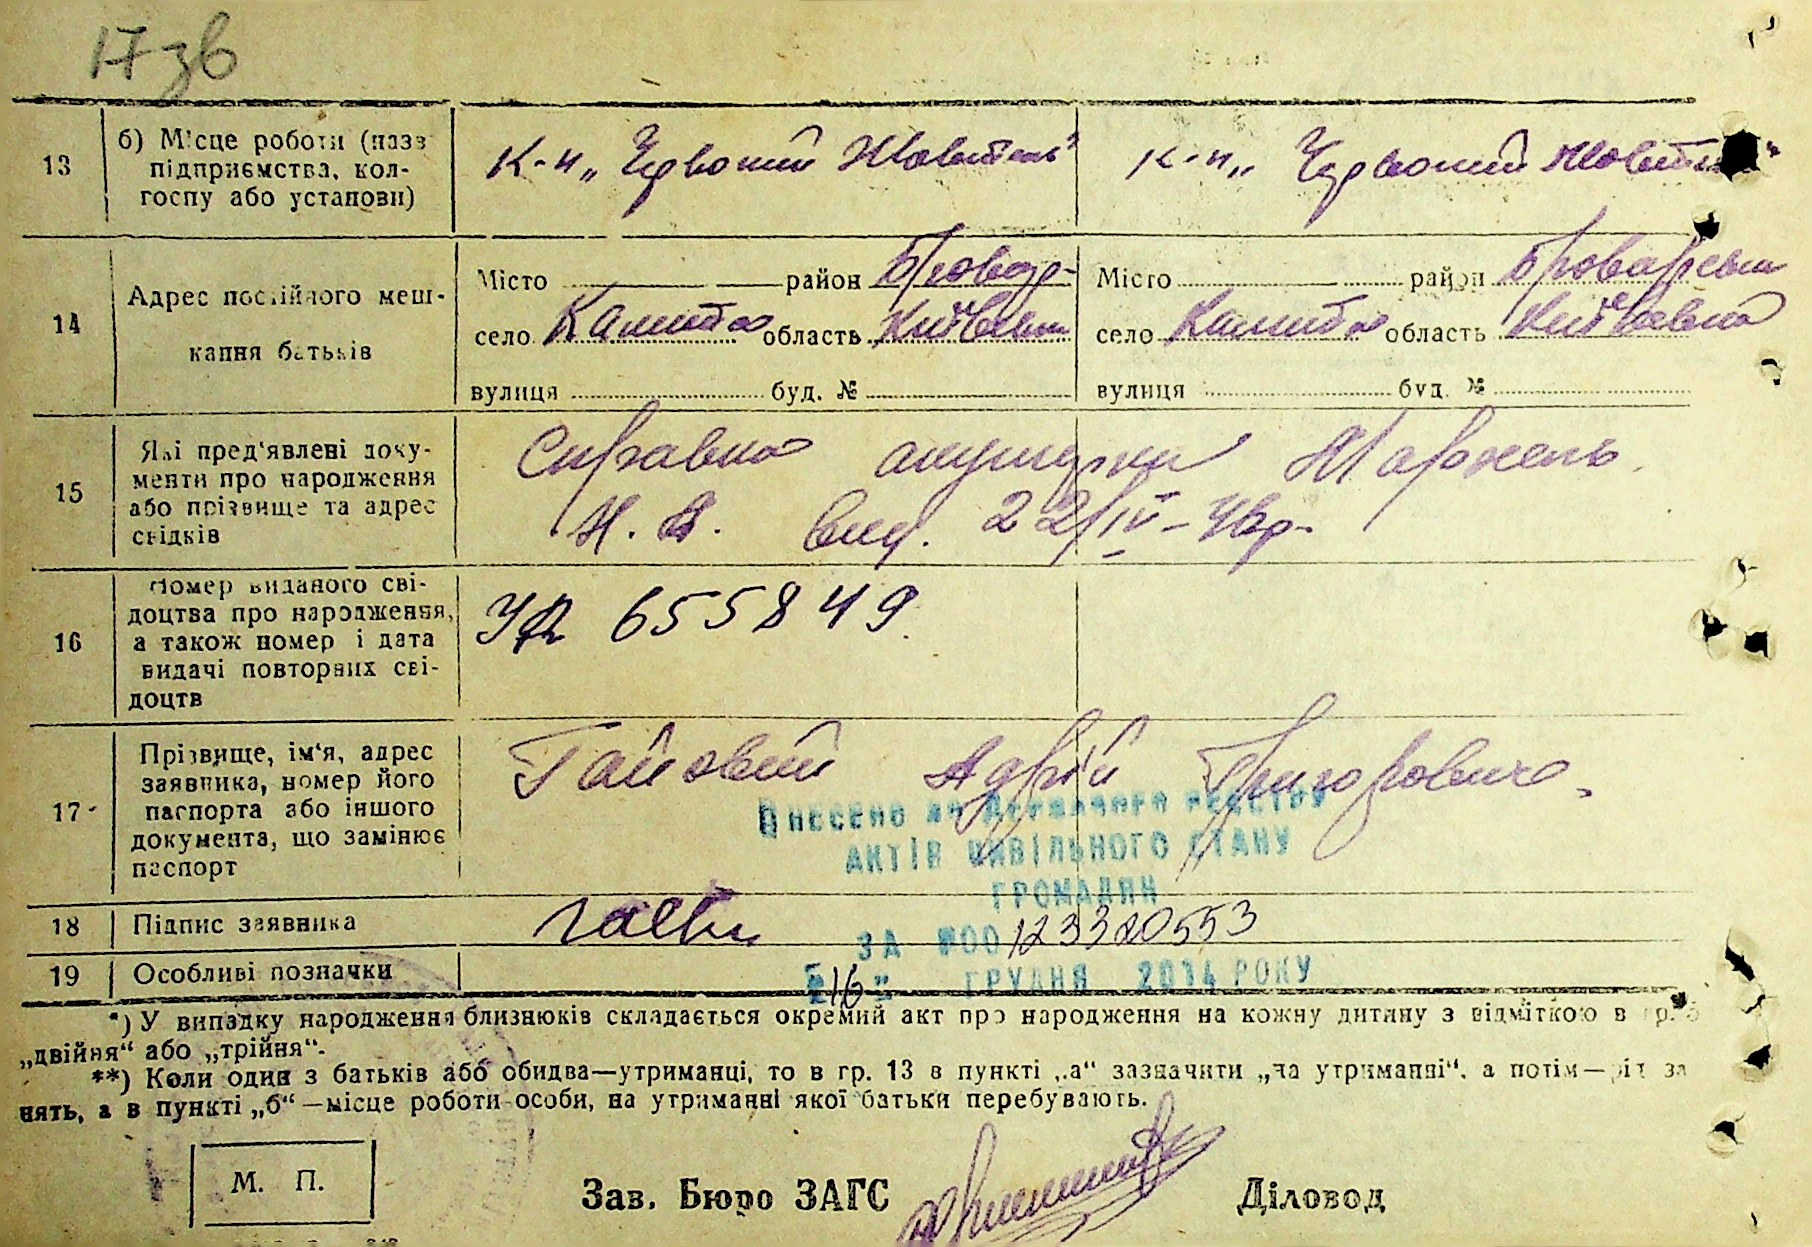 17 зв
13
б) Місце роботи (назв
підприємства, кол-
госпу або установи)
К-п „Червоний Жовтень"
К-п „Червоний Жовт
14
Адрес постійного меш-
кання батьків
Місто район Бровар-
село Калита область Київськ
вулиця буд. №
Місто район Броварськ
село Калита область Київська
вулиця буд. №
15
Які пред'явлені доку-
менти про народження
або прізвище та адрес
свідків
Справка акушерки
вид. 22/IV-4
16
Номер виданого сві-
доцтва про народження,
а також номер і дата
видачі повторних сві-
доцтв
655849
17
Прізвище, ім'я, адрес
заявника, номер його
паспорта або іншого
документа, що замінює
паспорт
Гайовий Адрій Григорович
Внесено до Державного реєстру
актів цивільного стану
громадян
за №00123320553
"16" грудня 2014 року
18
Підпис заявника
19
Особливі позначки
*) У випадку народження близнюків складається окремий акт про народження на кожну дитину з відміткою в гр. 5
„двійня" або „трійня".
**) Коли один з батьків або обидва—утриманці, то в гр. 13 в пункті „а" зазначити „на утриманні", а потім—рід за
нять, а в пункті „б"—місце роботи особи, на утриманні якої батьки перебувають.
М. П.
Зав. Бюро ЗАГС
Діловод